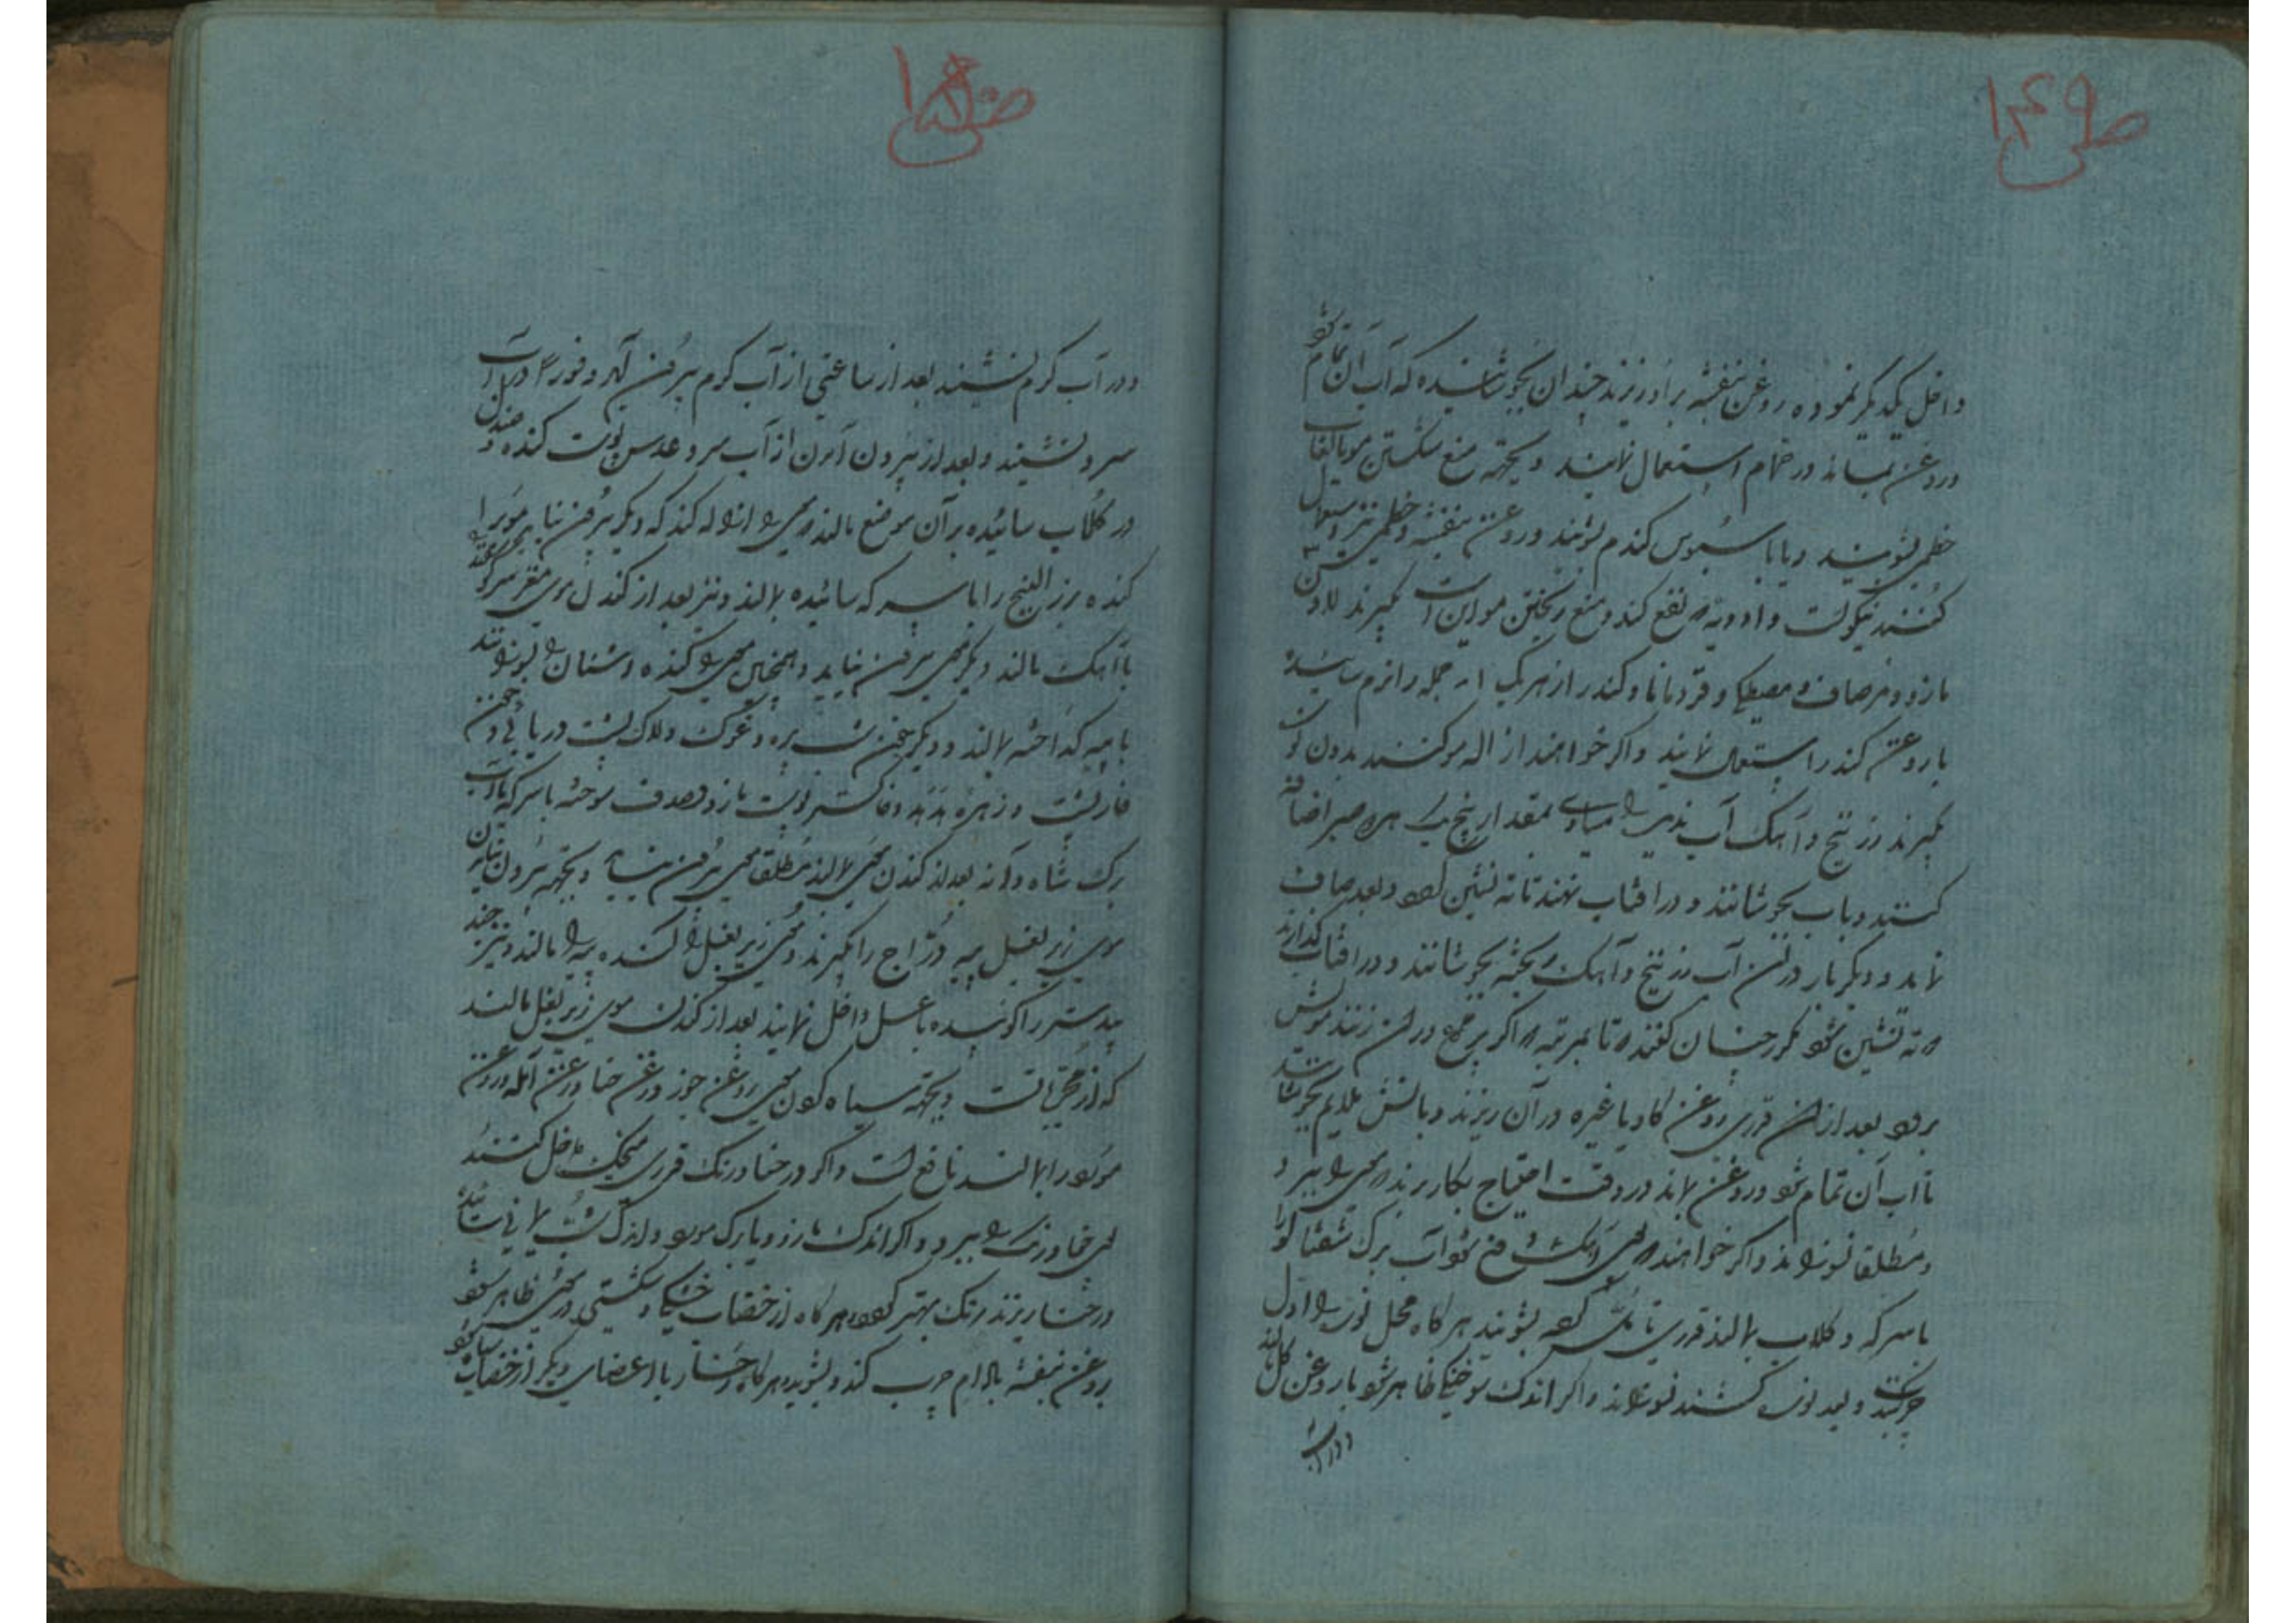 ص ۱۴۹
داخل یکدیگر نموده روغن بنفشه بر او ریزند چندان بجوشانیده که آب آن تمام شود
و روغن بماند در حمام استعمال نمایند و بجهة منع شکستن مو بالعاب
خطمی بشویند و یا با سبوس کندم بشویند و روغن بنفشه و خطمی نیز استعمال
کنند نیکوست و ادویه که نفع کند و منع ریختن مو این است بگیرند لادن
مازو و مصطکی و قردمانا و کندر از هر یک جمله را نرم سائیده
با روغن کندر استعمال نمایند و اگر خواهند ازاله مو کنند بدون
بگیرند زرنیخ و آهک آب ندیده مساوی بمقدار پنج یک صبر اضافه
کنند و باب بجوشانند و در افتاب نهند تا ته نشین شود و بعد صاف
نماید و دیگر بار در این آب زرنیخ و آهک ریخته بجوشانند و در افتاب گذارند
که ته نشین شود مکرر چنان کنند تا بمرتبه که اگر پر مرغ در آن زنند مویش
برود بعد از آن قدری روغن گاو یا غیره در آن ریزند و باتش ملایم بجوشانند
تا اب آن تمام شود و روغن بماند در وقت احتیاج بکار برند که موی را ببرد
و مطلقا نسوزاند و اگر خواهند که بوی آهک دفع شود آب برک شفتالو را
با سرکه و کلاب بمالند قدری تامل کرده بشویند هر گاه محل نوره را اول
چرب کنند و بعد نوره کشند نسوزاند و اگر اندک سوختگی ظاهر شود با روغن گل بمالند
و در آب
ص ۱۵۰
و در آب کرم نشیند بعد از ساعتی از آب کرم بیرون آید و فورا در آب
سرد نشیند و بعد از بیرون آمدن از آب سرد عدس پوست کنده و صندل
در کلاب سائیده بر آن موضع مالند موی را ازاله کند که دیگر بیرون نیاید موی را
کنده بزر البنج را با سرکه سائیده بمالند و نیز بعد از کندن موی
با آهک مالند دیگر موی بیرون نیاید و همچنین موی را کنده اشنان را بسوزانند
با پیه کداخته بمالند و دیگر خون شب پره و غوک و لاک پشت دریایی و خون
خارپشت و زهره هدهد و خاکستر پوست مازو و صدف سوخته با سرکه یا آب
برک شاه دانه بعد از کندن موی بمالند مطلقا موی بیرون نیاید و بجهة بیرون نیامدن
موی زیر بغل پیه دراج را بگیرند و موی زیر بغل را کنده پیه را بمالند و نیز جند
بیدستر را کوبیده با عسل داخل نمایند بعد از کندن موی زیر بغل بمالند
که از مجربات است و بجهة سیاه کردن موی روغن جوز و روغن حنا و روغن آمله و روغن
مورد را بمالند نافع است و اگر در حنا و رنک قدری میخک داخل کنند
بوی حنا و رنک را ببرد و اگر اندک مازو و یا برک مورد و اندک شب یمانی سائیده
در حنا ریزند رنک بهتر کند و هر گاه از خضاب خشکی و شکستگی در موی ظاهر شود
روغن بنفشه بادام چرب کند و بشوید و هر گاه رخسار یا اعضای دیگر از خضاب سیاه شود